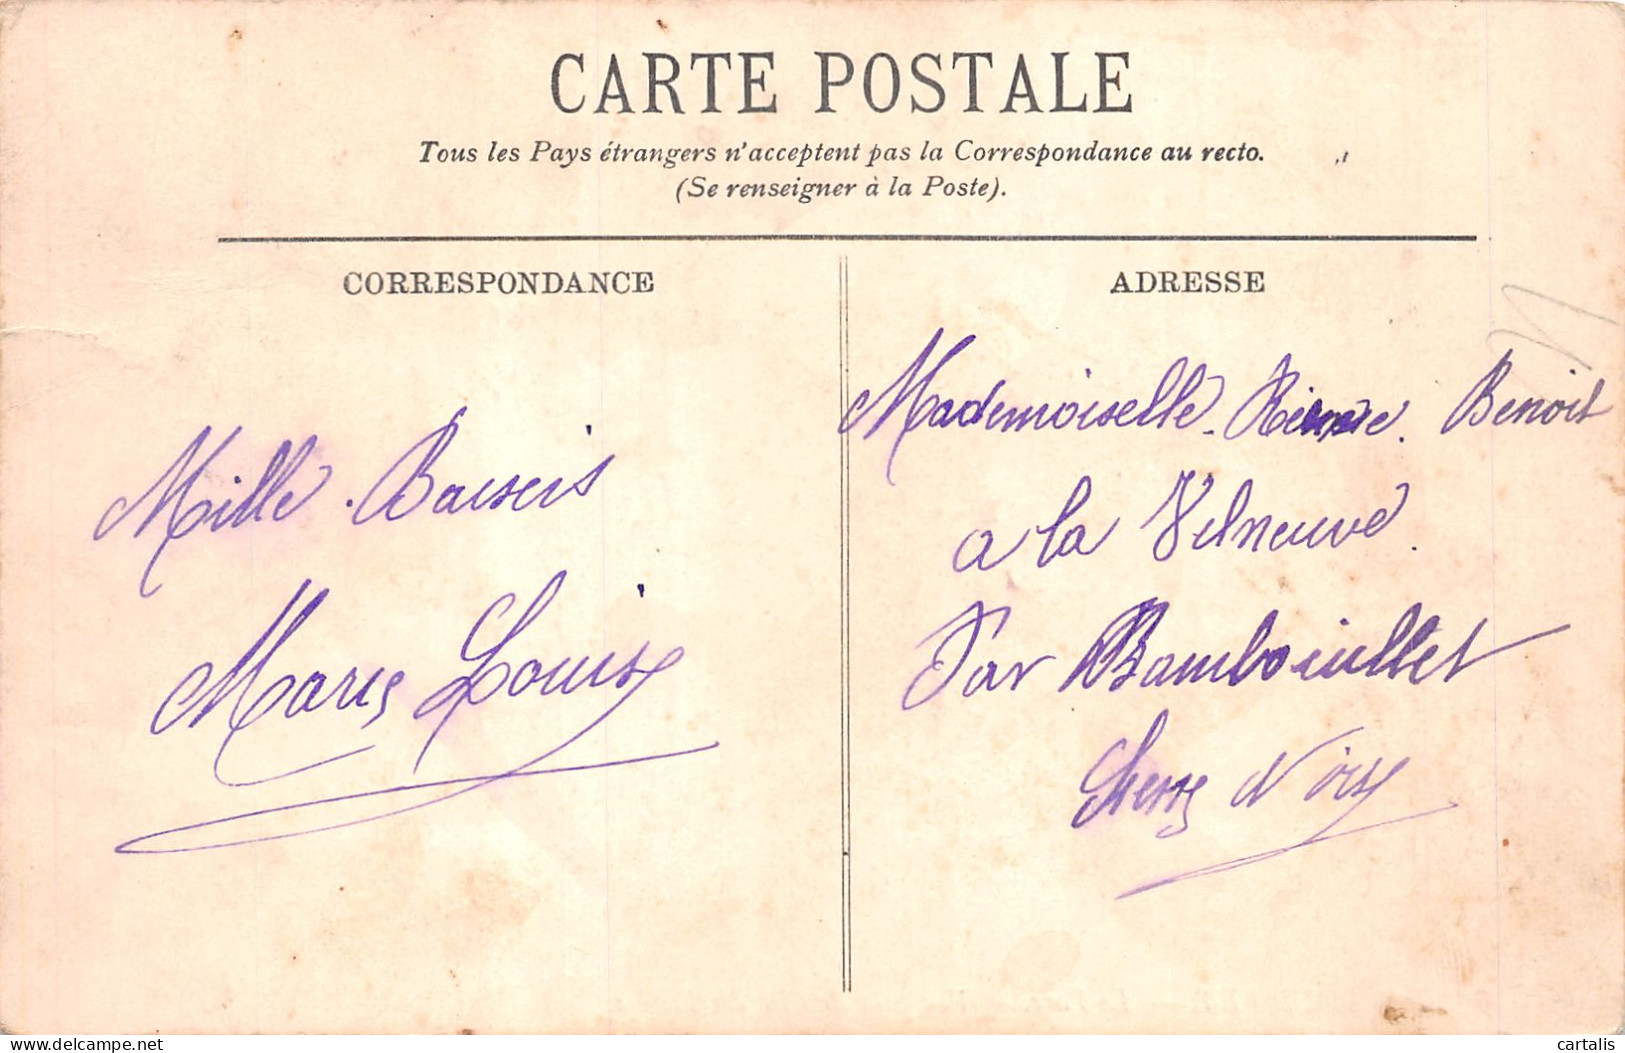 CARTE POSTALE
Tous les Pays étrangers n'acceptent pas la Correspondance au recto.
(Se renseigner à la Poste).
CORRESPONDANCE
ADRESSE
Mille Baisers
Marie Louise
Mademoiselle Benoit
a la Vilneuve
Par Rambouillet
Seine et Oise
www.delcampe.net
cartalis